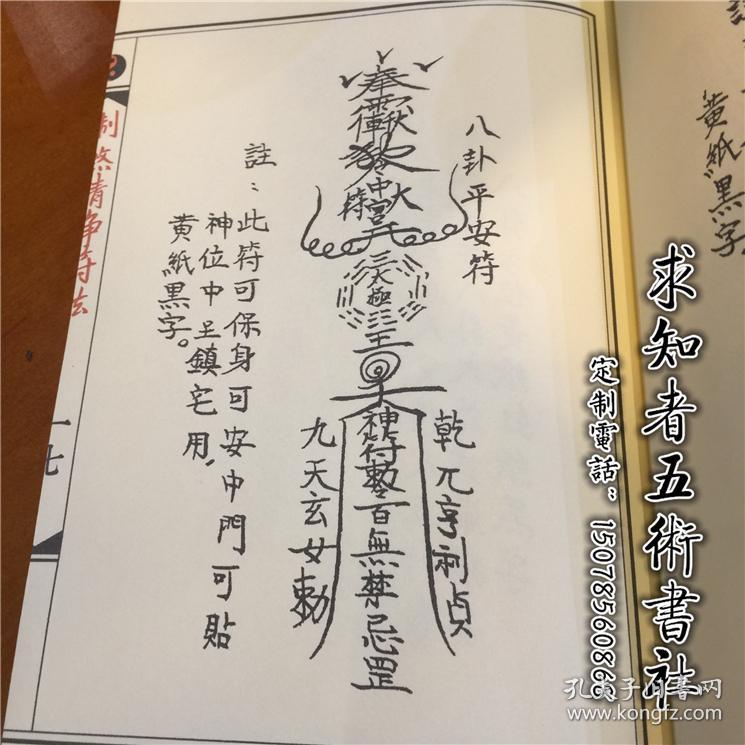 八卦平安符
奉
中宮
符
太極
神符敕百無禁忌罡
乾兀亨利貞
九天玄女勅
註：此符可保身可安中門可貼
神位中呈鎮宅用，
黃紙黑字。
制煞清净符法
一七
黃紙黑字
求知者五術書社
定制電話：15078560868
孔夫子旧书网
www.kongfz.com